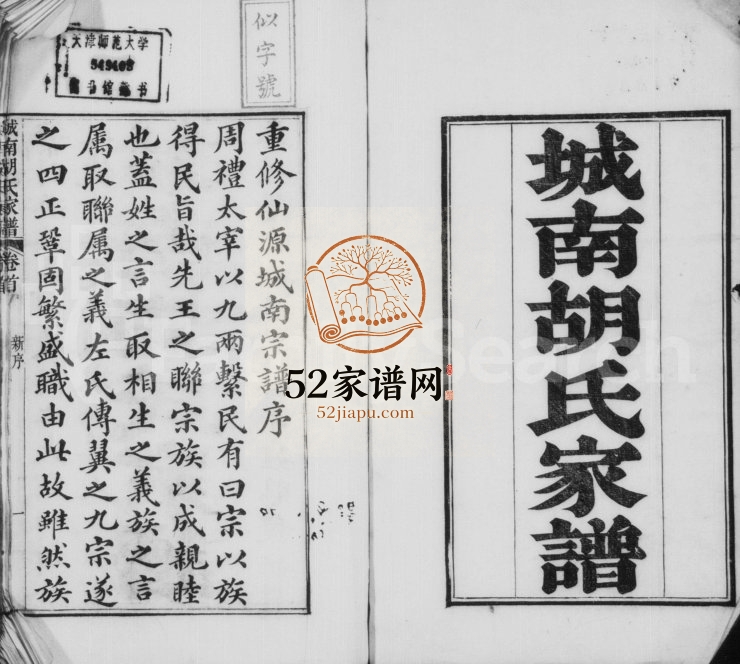 城南胡氏家譜
似字號
天津师范大学
949408
图书馆藏书
重修仙源城南宗譜序
周禮太宰以九兩繫民有曰宗以族
得民旨哉先王之聯宗族以成親睦
也蓋姓之言生取相生之義族之言
属取聯属之義左氏傳翼之九宗遂
之四正鞏固繁盛職由此故雖然族
城南胡氏家譜 卷首 新序 一
52家谱网
52jiapu.com